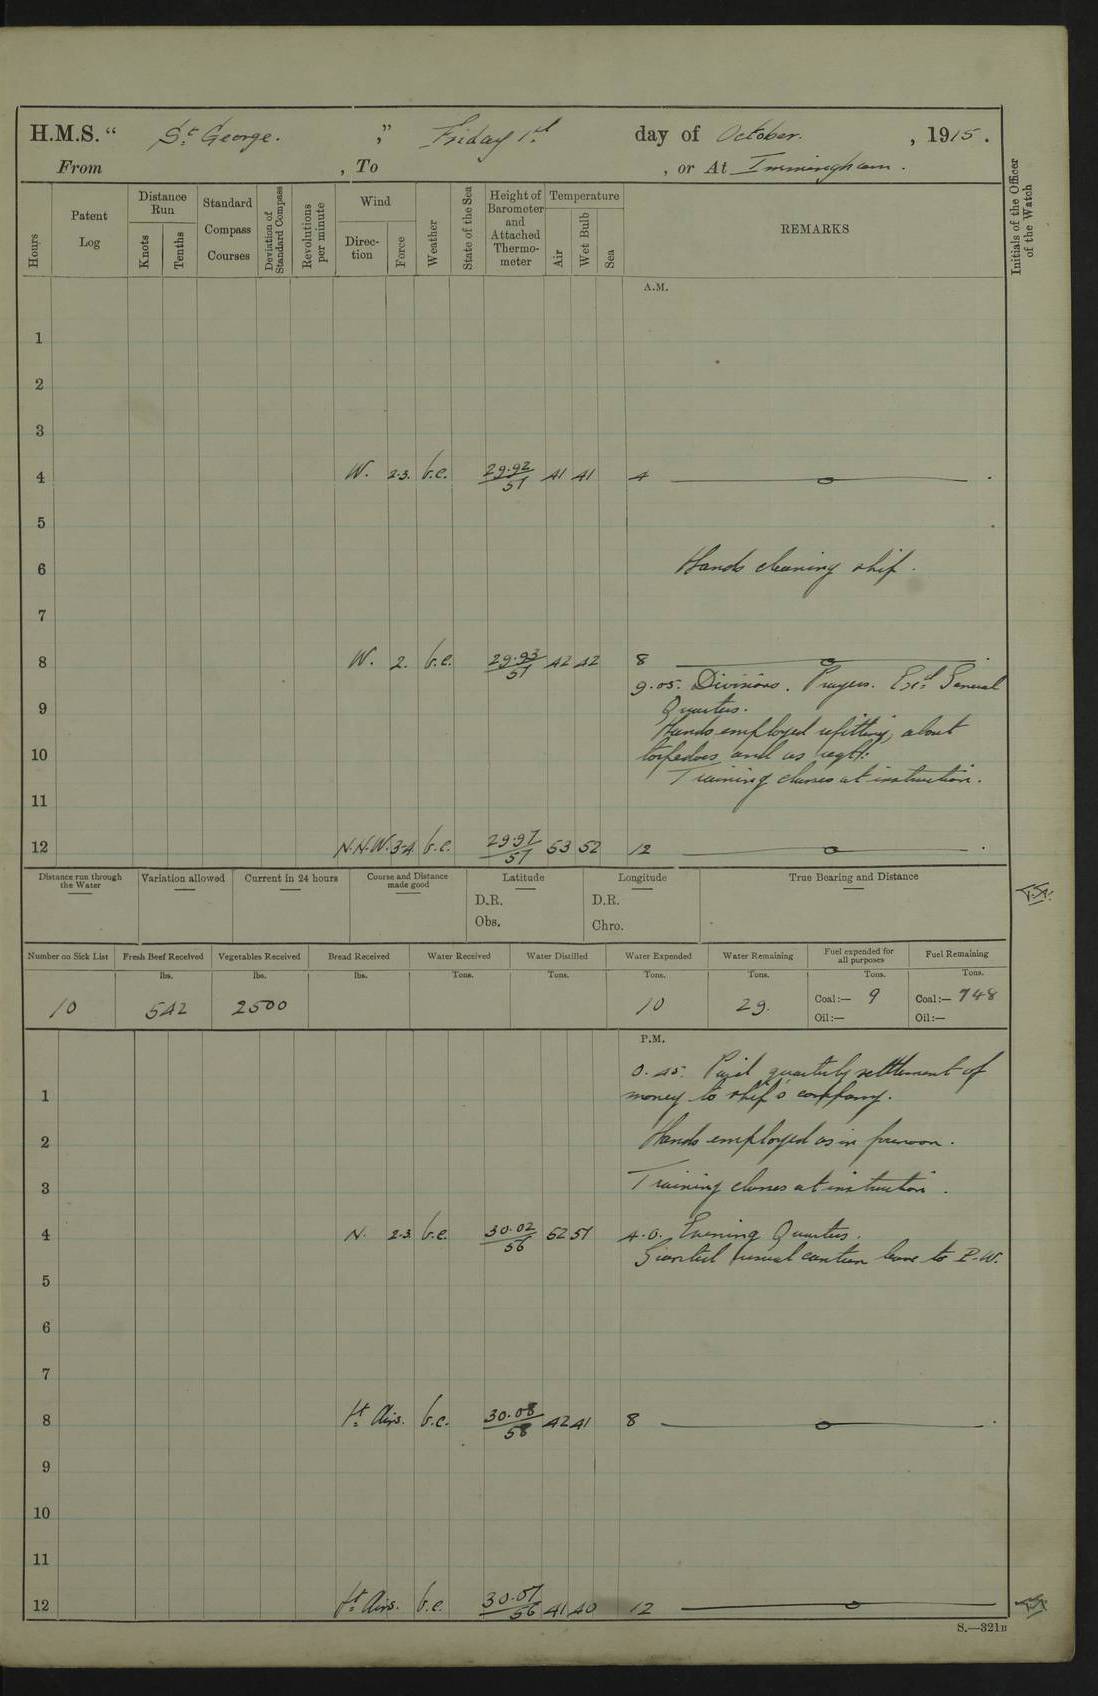 H.M.S. “ St George. ,” Friday 1st day of October. , 1915.
From , To , or At Immingham.
Hours
Patent Log
Distance Run
Knots
Tenths
Standard Compass Courses
Deviation of Standard Compass
Revolutions per minute
Wind
Direc-tion
Force
Weather
State of the Sea
Height of Barometer and Attached Thermo-meter
Temperature
Air
Wet Bulb
Sea
REMARKS
Initials of the Officer of the Watch
A.M.
1
2
3
4 W. 2.3. b.c. 29.92/57 41 41 4
5
6 Hands cleaning ship.
7
8 W. 2. b.c. 29.93/57 42 42 8
9.05. Divisions. Prayers. Exd General
9 Quarters.
Hands employed refitting, about
10 torpedoes and as reqd:
Training classes at instruction.
11
12 N.N.W. 3-4 b.c. 29.97/57 53 52 12
Distance run through the Water
Variation allowed
Current in 24 hours
Course and Distance made good
Latitude
D.R.
Obs.
Longitude
D.R.
Chro.
True Bearing and Distance
Number on Sick List
Fresh Beef Received
Vegetables Received
Bread Received
Water Received
Water Distilled
Water Expended
Water Remaining
Fuel expended for all purposes
Fuel Remaining
lbs. lbs. lbs. Tons. Tons. Tons. Tons. Tons. Tons.
10 542 2500 10 29. Coal:— 9 Coal:— 948
Oil:— Oil:—
P.M.
0.45. Paid quarterly settlement of
1 money to ship's company.
2 Hands employed as in forenoon.
3 Training classes at instruction.
4 N. 2.3. b.c. 30.02/56 52 51 4.0. Evening Quarters.
Granted usual canteen leave to P.W.
5
6
7
8 Lt Airs. b.c. 30.08/58 42 41 8
9
10
11
12 Lt Airs. b.c. 30.07/56 41 40 12
S.—321B